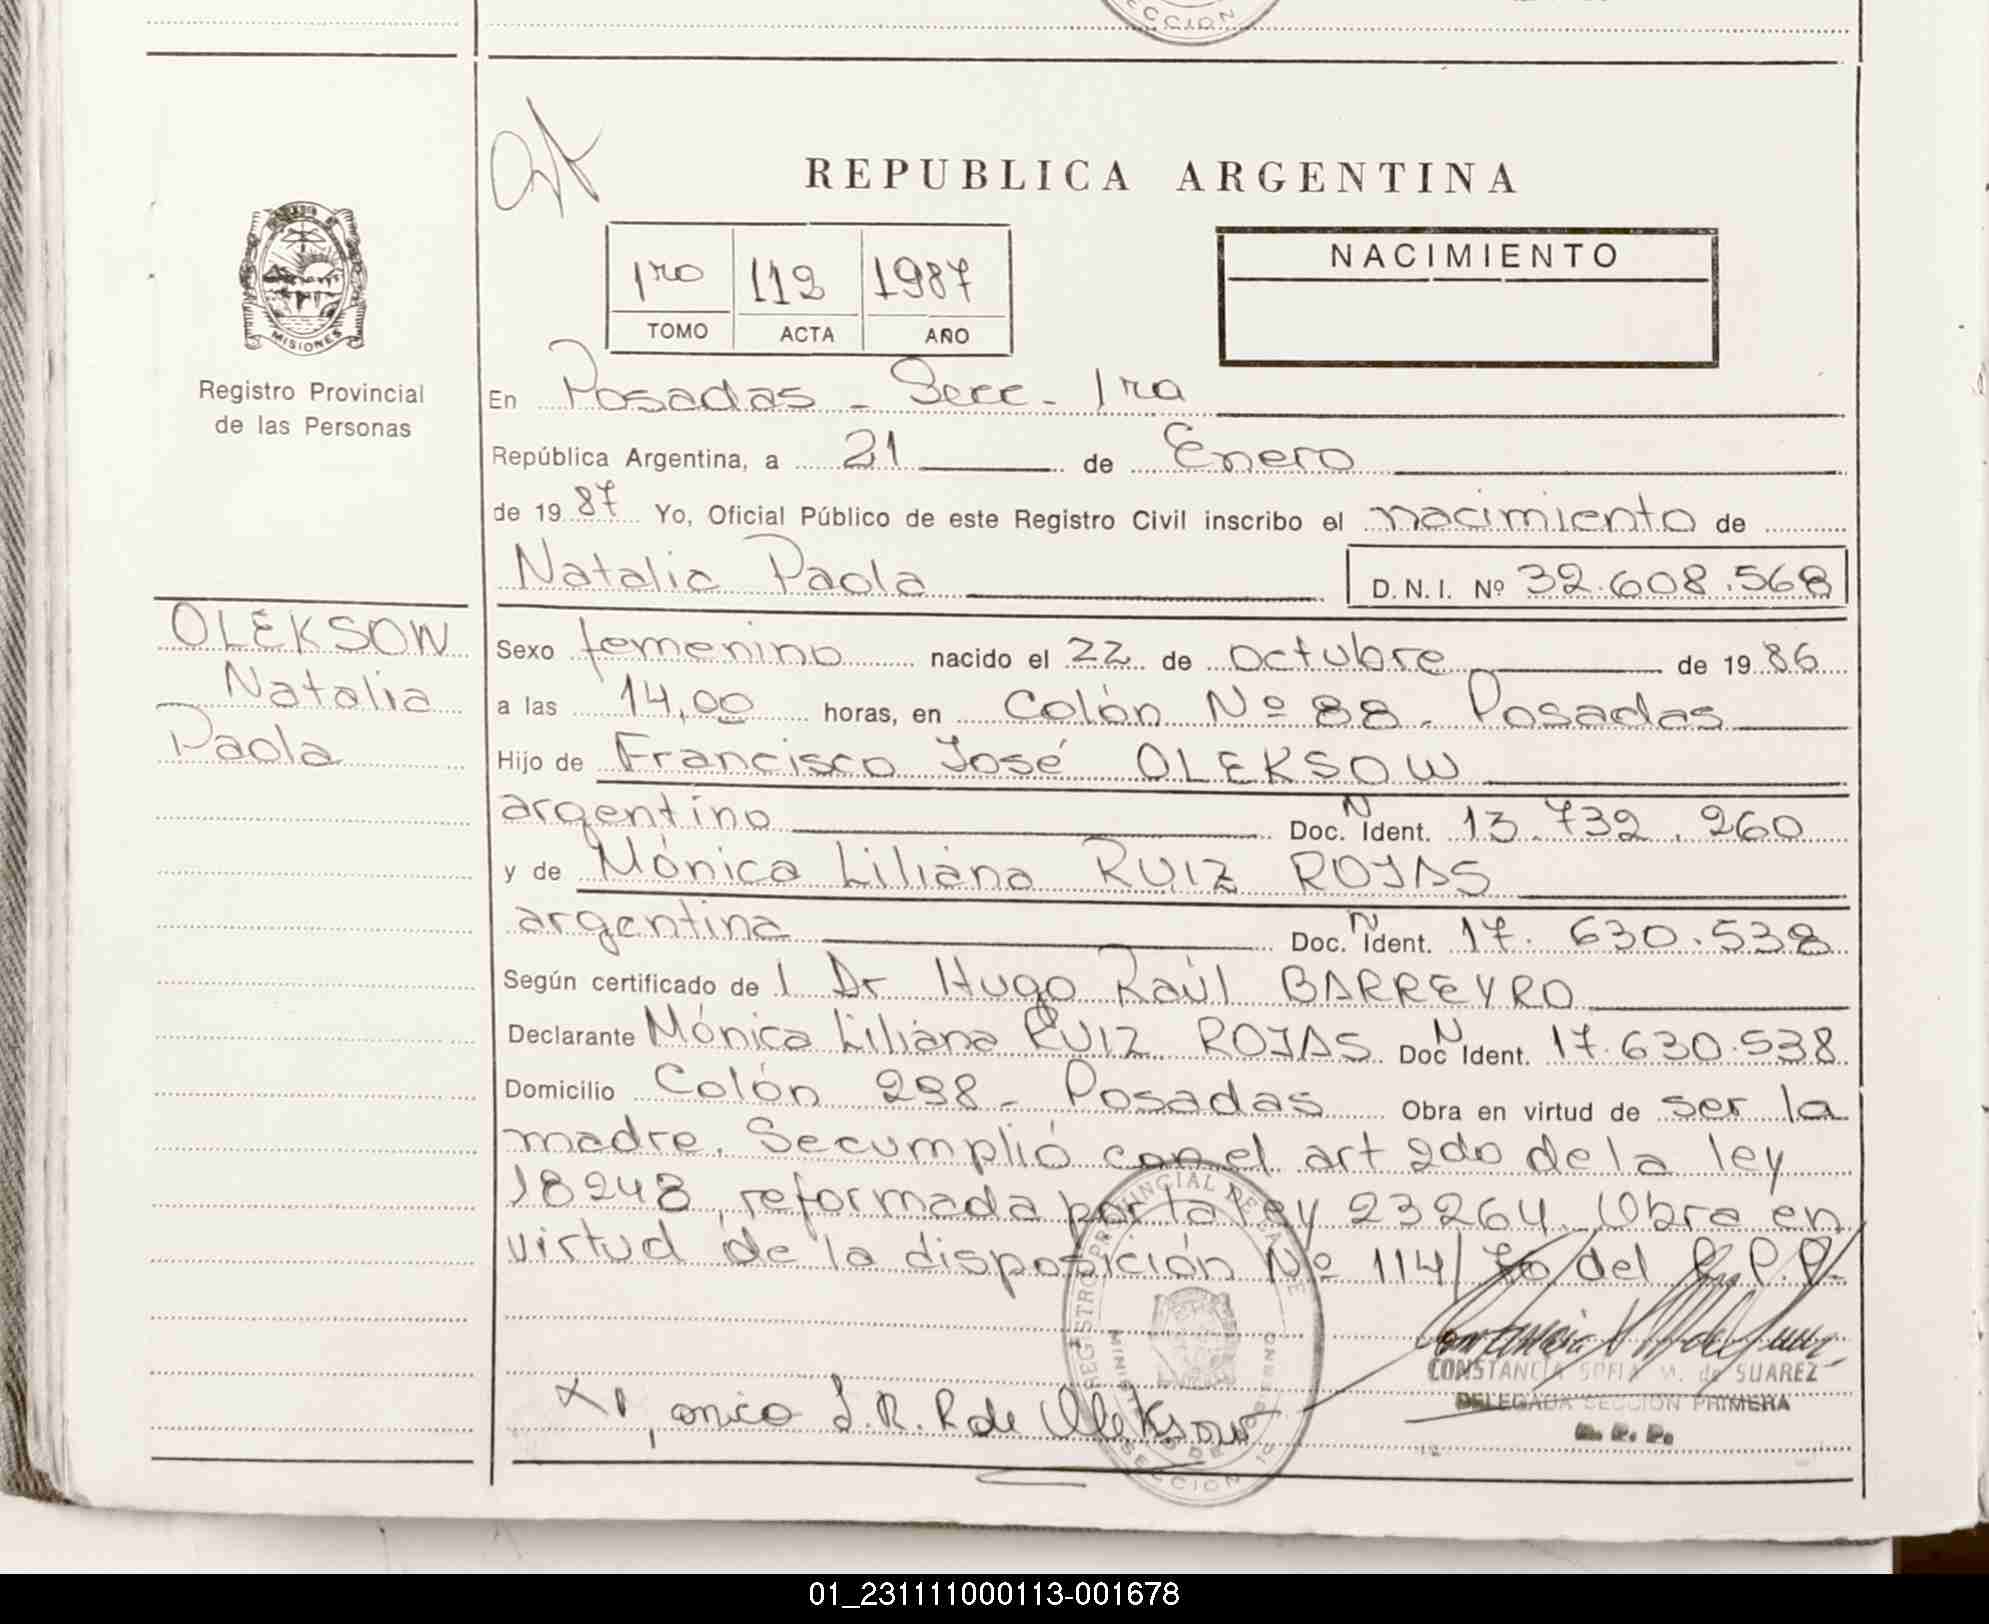 SECCION
REPUBLICA ARGENTINA
1ro 112 1987
TOMO ACTA AÑO
NACIMIENTO
MISIONES
Registro Provincial
de las Personas
En Posadas - Secc - 1ra
República Argentina, a 21 de Enero
de 1987 Yo, Oficial Público de este Registro Civil inscribo el nacimiento de
Natalia Paola D.N.I. Nº 32.608.568
OLEKSOW
Natalia
Paola
Sexo femenino nacido el 22 de octubre de 1986
a las 14,00 horas, en Colón Nº 88. Posadas
Hijo de Francisco José OLEKSOW
argentino Doc. N Ident. 13.732.260
y de Mónica Liliana RUIZ ROJAS
argentina Doc. N Ident. 17.630.538
Según certificado de l Dr Hugo Raúl BARREYRO
Declarante Mónica Liliana RUIZ ROJAS Doc N Ident. 17.630.538
Domicilio Colón 298 - Posadas Obra en virtud de ser la
madre. Se cumplió con el art 2do de la ley
18248, reformada por la ley 23264. Obra en
virtud de la disposición Nº 114/70 del R.P.P.
REGISTRO PROVINCIAL DE LAS
MINISTERIO DE GOBIERNO
SECCION 1º
CONSTANCIA SOFIA M. de SUAREZ
DELEGADA SECCION PRIMERA
R. P. P.
L. R. R de Oleksow
01_231111000113-001678